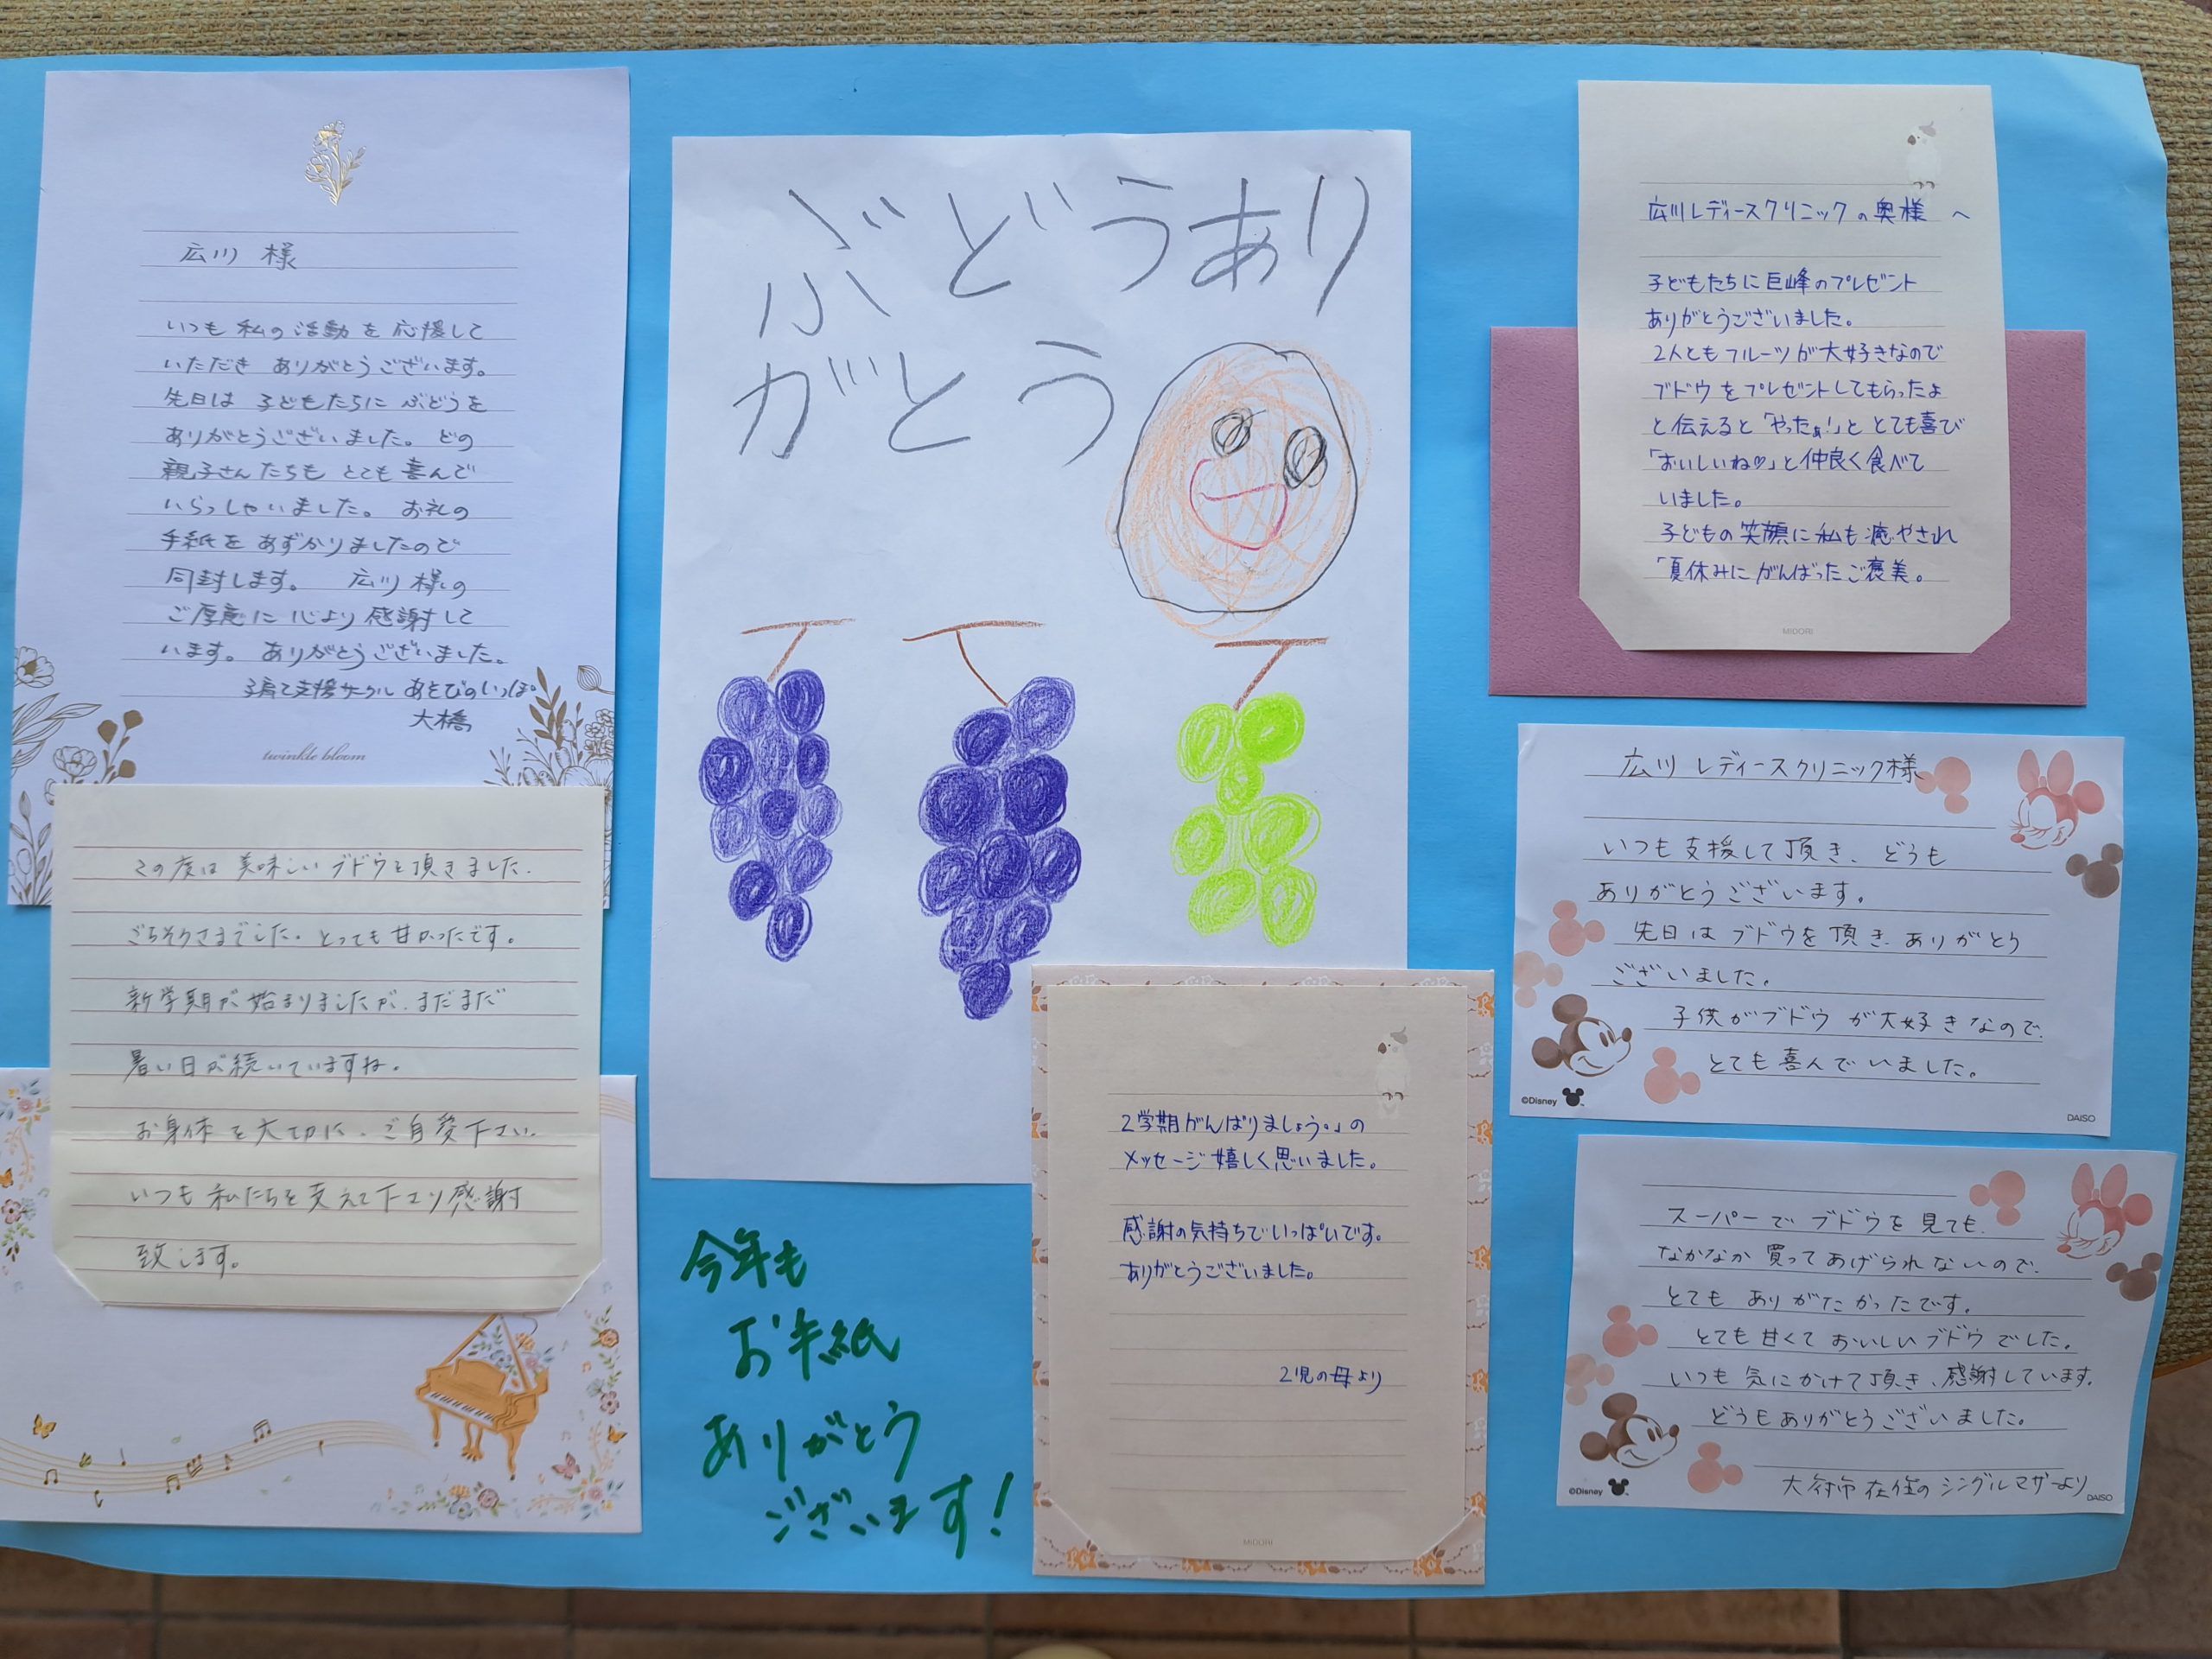 広川 様
いつも 私の 活動 を 応援して
いただき ありがとうございます。
先日は 子どもたちに ぶどうを
ありがとうございました。 どの
親子さん たちも とても 喜んで
いらっしゃいました。 お礼の
手紙を あずかりましたので
同封します。 広川 様の
ご厚意に 心より 感謝して
います。 ありがとうございました。
子育て支援サークル あそびのいっぽ
大橋
twinkle bloom
この度は 美味しい ブドウを頂きました.
ごちそうさまでした. とっても甘かったです。
新学期が 始まりましたが、まだまだ
暑い日が続いていますね。
お身体を大切に、ご自愛下さい.
いつも 私たちを 支えて下さり感謝
致します。
ぶどうあり
がとう
今年も
お手紙
ありがとう
ございます!
2学期がんばりましょう。」の
メッセージ嬉しく思いました。
感謝の気持ちでいっぱいです。
ありがとうございました。
2児の母より
MIDORI
広川レディースクリニックの奥様 へ
子どもたちに巨峰のプレゼント
ありがとうございました。
2人ともフルーツが大好きなので
ブドウをプレゼントしてもらったよ
と伝えると「やったぁ!」ととても喜び
「おいしいね♡」と仲良く食べて
いました。
子どもの笑顔に私も癒やされ
「夏休みにがんばったご褒美。
MIDORI
広川 レディースクリニック様
いつも支援して頂き、どうも
ありがとうございます。
先日はブドウを頂き、ありがとう
ございました。
子供がブドウが大好きなので、
とても喜んでいました。
©Disney
DAISO
スーパーでブドウを見ても、
なかなか買ってあげられないので、
とてもありがたかったです。
とても甘くておいしいブドウでした。
いつも気にかけて頂き、感謝しています。
どうもありがとうございました。
大府市在住のシングルマザーより
©Disney
DAISO